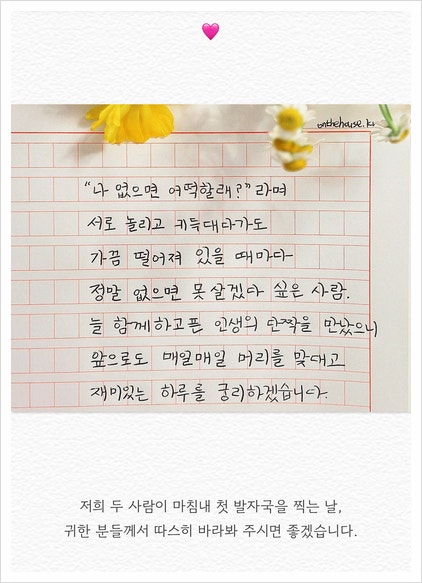 onthehouse.kr
"나 없으면 어떡할래?"라며
서로 놀리고 키득대다가도
가끔 떨어져 있을 때마다
정말 없으면 못 살겠다 싶은 사람.
늘 함께하고픈 인생의 단짝을 만났으니
앞으로도 매일매일 머리를 맞대고
재미있는 하루를 궁리하겠습니다.
저희 두 사람이 마침내 첫 발자국을 찍는 날,
귀한 분들께서 따스히 바라봐 주시면 좋겠습니다.